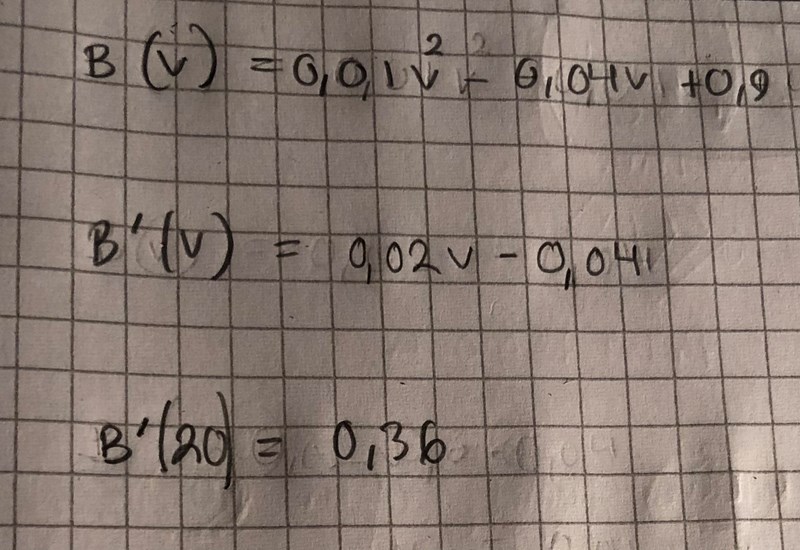 B (v) = 0,0,1v² - 0,04v + 0,9
B'(v) = 0,02v - 0,04
B'(20) = 0,36